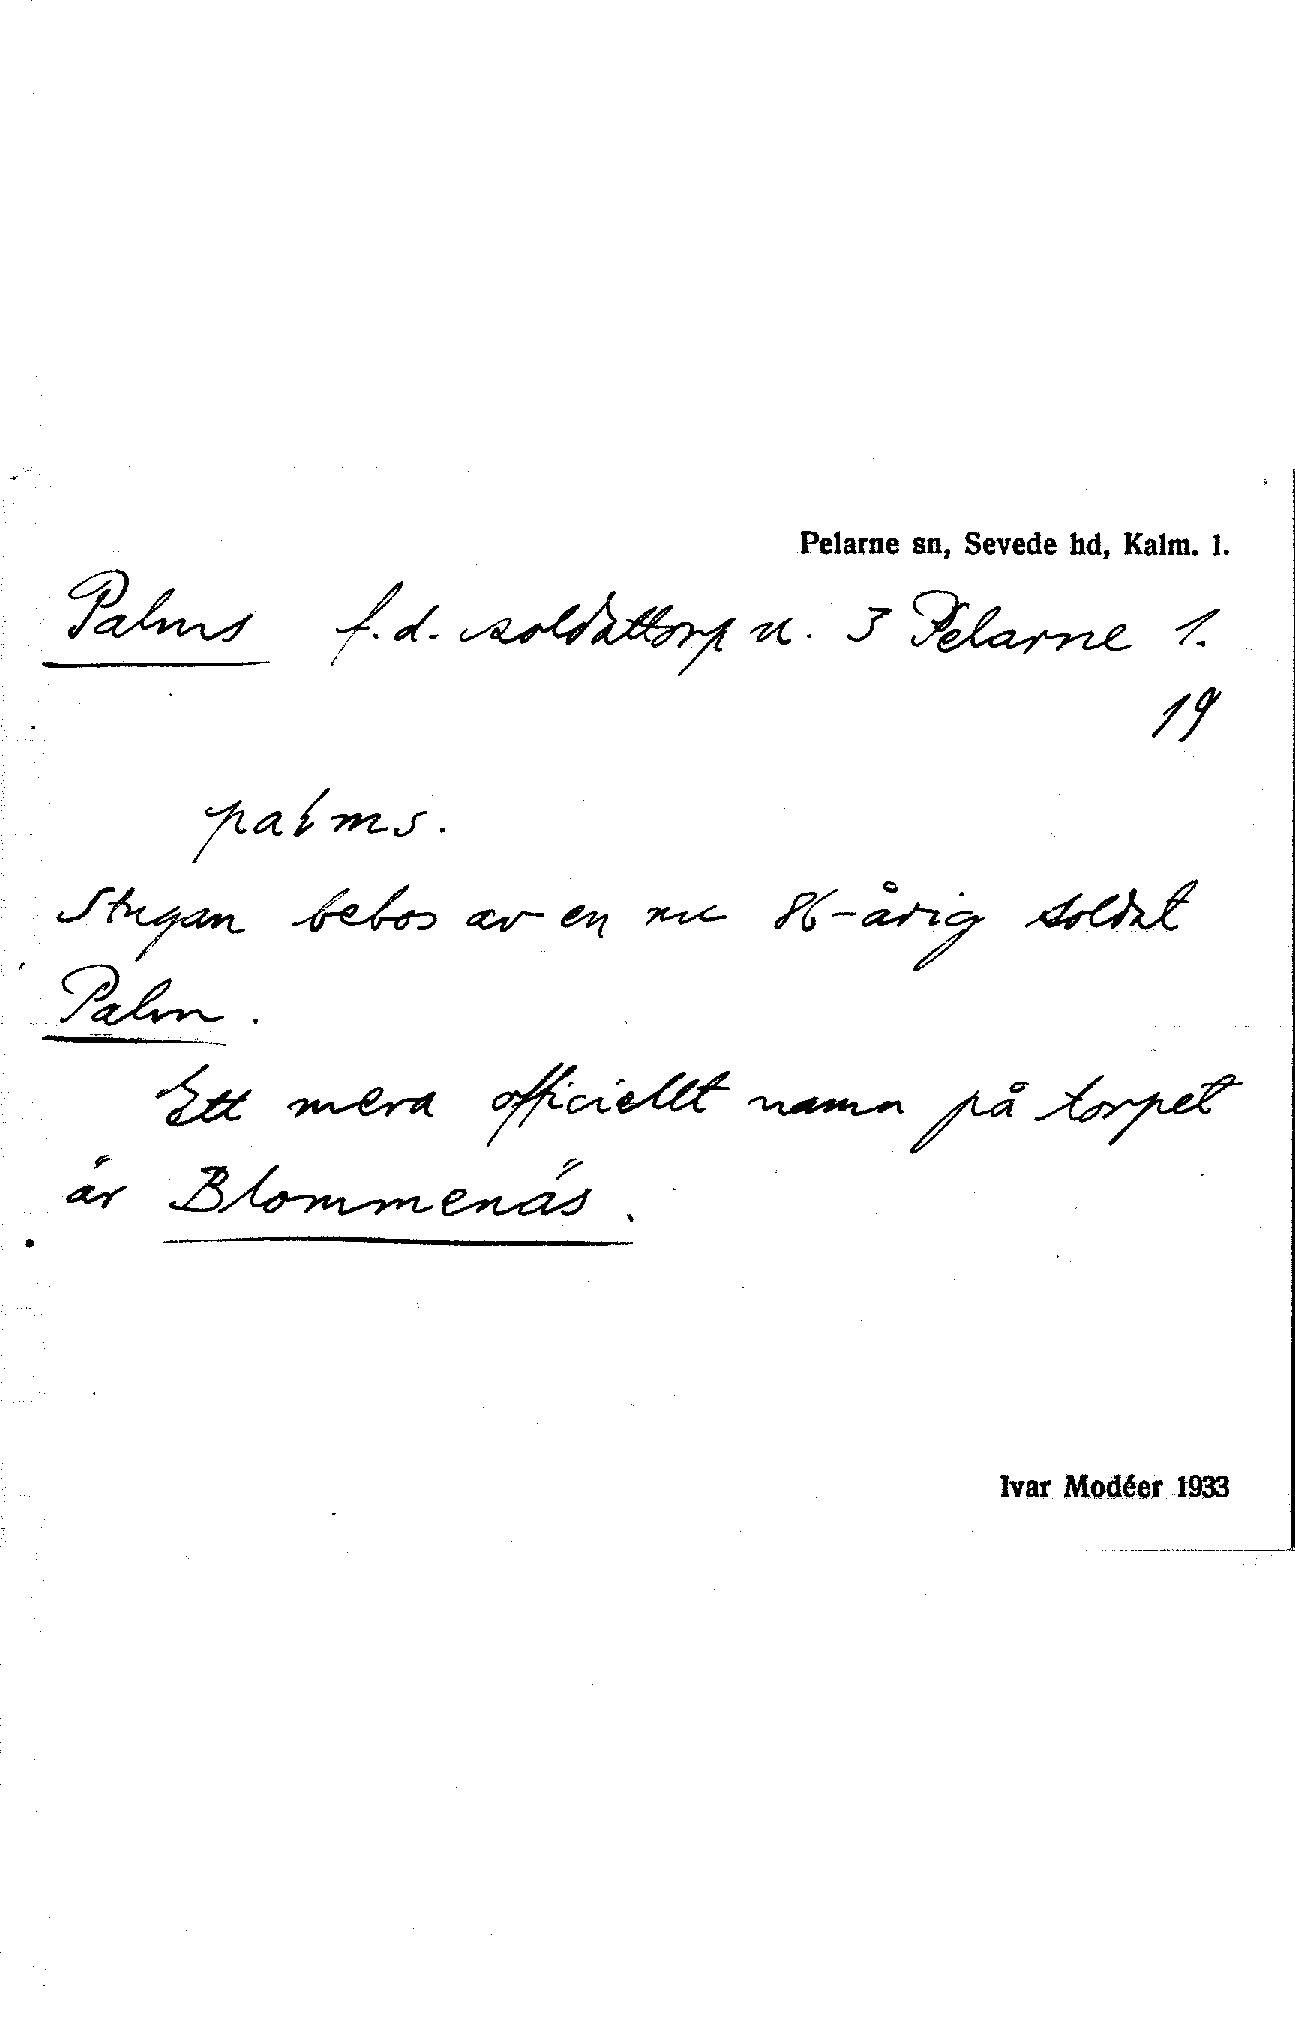 Pelarne sn, Sevede hd, Kalm. l.
Palms f.d. soldattorp u. 3 Pelarne 1.
19
palms.
Stugan bebos av en nu 86-årig soldat
Palm.
Ett mera officiellt namn på torpet
är Blommenäs.
Ivar Modéer 1933